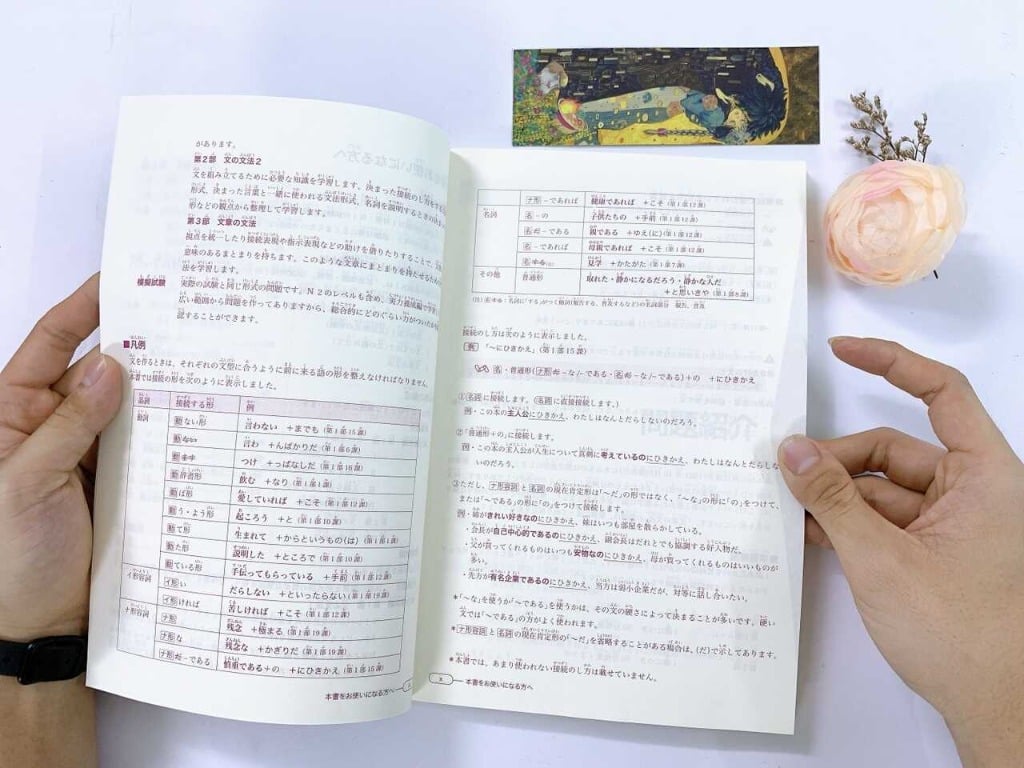 があります。
第2部　文の文法2
文を組み立てるために必要な知識を学習します。決まった接続のし方をする
形式、決まった言葉と一緒に使われる文法形式、名詞を説明するときの
形などの観点から整理して学習します。
第3部　文章の文法
視点を統一したり接続表現や指示表現などの助けを借りたりすることで、
意味のあるまとまりを持ちます。このような文章にまとまりを持たせるための
法を学習します。
模擬試験
実際の試験と同じ形式の問題です。N2のレベルも含め、実力養成編で学
広い範囲から問題を作ってありますから、総合的にどのぐらい力がついたか
認することができます。
■凡例
文を作るときは、それぞれの文型に合うように前に来る語の形を整えなければなりません。
本書では接続の形を次のように表示しました。
品詞　接続する形　例
動詞　動ない形　言わない　+までも（第1部15課）
動ない　言わ　+んばかりだ
動ます　つけ　+っぱなしだ
動辞書形　飲む　+なり
動ば形　愛していれば　+こそ（第1部12課）
動う・よう形　起ころう　+と（第1部10課）
動て形　生まれて　+からというもの(は)（第1部1課）
動た形　説明した　+ところで（第1部10課）
動ている形　手伝ってもらっている　+手前（第1部12課）
イ形容詞　イ形い　だらしない　+といったらない
イ形ければ　苦しければ　+こそ（第1部12課）
ナ形容詞　ナ形　残念　+極まる（第1部19課）
ナ形な　残念な　+かぎりだ（第1部19課）
ナ形だ-である　慎重である+の　+にひきかえ（第1部15課）
本書をお使いになる方へ
ナ形-であれば　健康であれば　+こそ（第1部12課）
名詞　名-の　子供たちの　+手前（第1部12課）
名だ-である　親である　+ゆえ(に)（第1部12課）
名-であれば　母親であれば　+こそ（第1部12課）
名する　見学　+かたがた（第1部7課）
その他　普通形　取れた・静かになるだろう・静かな人だ
+と思いきや（第1部8課）
接続のし方は次のように表示しました。
例　「～にひきかえ」（第1部15課）
名・普通形（ナ形だ-な/-である・名だ-な/-である）+の　+にひきかえ
①名詞に接続します。（名詞に直接接続します。）
例・この本の主人公にひきかえ、わたしはなんとだらしないのだろう。
②「普通形+の」に接続します。
例・この本の主人公が人生について真剣に考えているのにひきかえ、わたしはなんとだらしな
いのだろう。
③ただし、ナ形容詞と名詞の現在肯定形は「～だ」の形ではなく、「～な」の形に「の」をつけて、
または「～である」の形に「の」をつけて接続します。
例・姉がきれい好きなのにひきかえ、妹はいつも部屋を散らかしている。
・会長が自己中心的であるのにひきかえ、副会長はだれとでも協調する好人物だ。
・父が買ってくれるものはいつも安物なのにひきかえ、母が買ってくれるものはいいものが
多い。
・先方が有名企業であるのにひきかえ、当方は弱小企業だが、対等に話し合いたい。
*「～な」を使うか「～である」を使うかは、その文の硬さによって決まることが多いです。硬い
文では「～である」の方がよく使われます。
*ナ形容詞と名詞の現在肯定形の「～だ」を省略することがある場合は、(だ)で示してあります。
*本書では、あまり使われない接続のし方は載せていません。
x　本書をお使いになる方へ